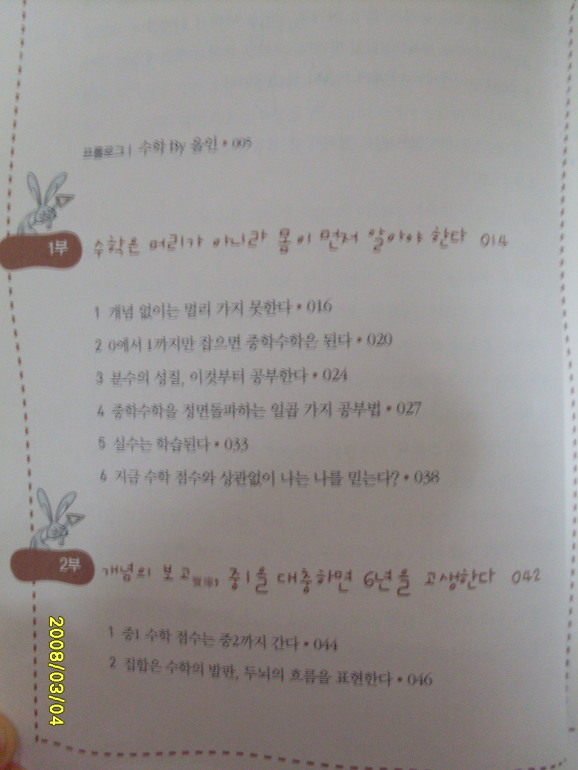 프롤로그 | 수학 By 올인 • 005
1부 수학은 머리가 아니라 몸이 먼저 알아야 한다 014
1 개념 없이는 멀리 가지 못한다 • 016
2 0에서 1까지만 잡으면 중학수학은 된다 • 020
3 분수의 성질, 이것부터 공부한다 • 024
4 중학수학을 정면돌파하는 일곱 가지 공부법 • 027
5 실수는 학습된다 • 033
6 지금 수학 점수와 상관없이 나는 나를 믿는다? • 038
2부 개념의 보고寶庫, 중1을 대충하면 6년을 고생한다 042
1 중1 수학 점수는 중2까지 간다 • 044
2 집합은 수학의 발판, 두뇌의 흐름을 표현한다 • 046
2008/03/04